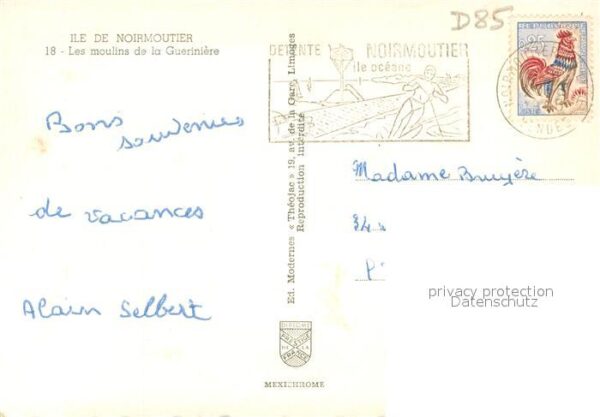 ILE DE NOIRMOUTIER
18 - Les moulins de la Guerinière
D85
DETENTE
NOIRMOUTIER
île océane
Bons
souvenirs
de vacances
Alain Selbert
Ed. Modernes « Théojac » 19, av. de la Gare, Limoges
Reproduction interdite
Madame Bruyère
34
P
privacy protection
Datenschutz
PRESTIGE
DE LA
FRANCE
MEXICHROME